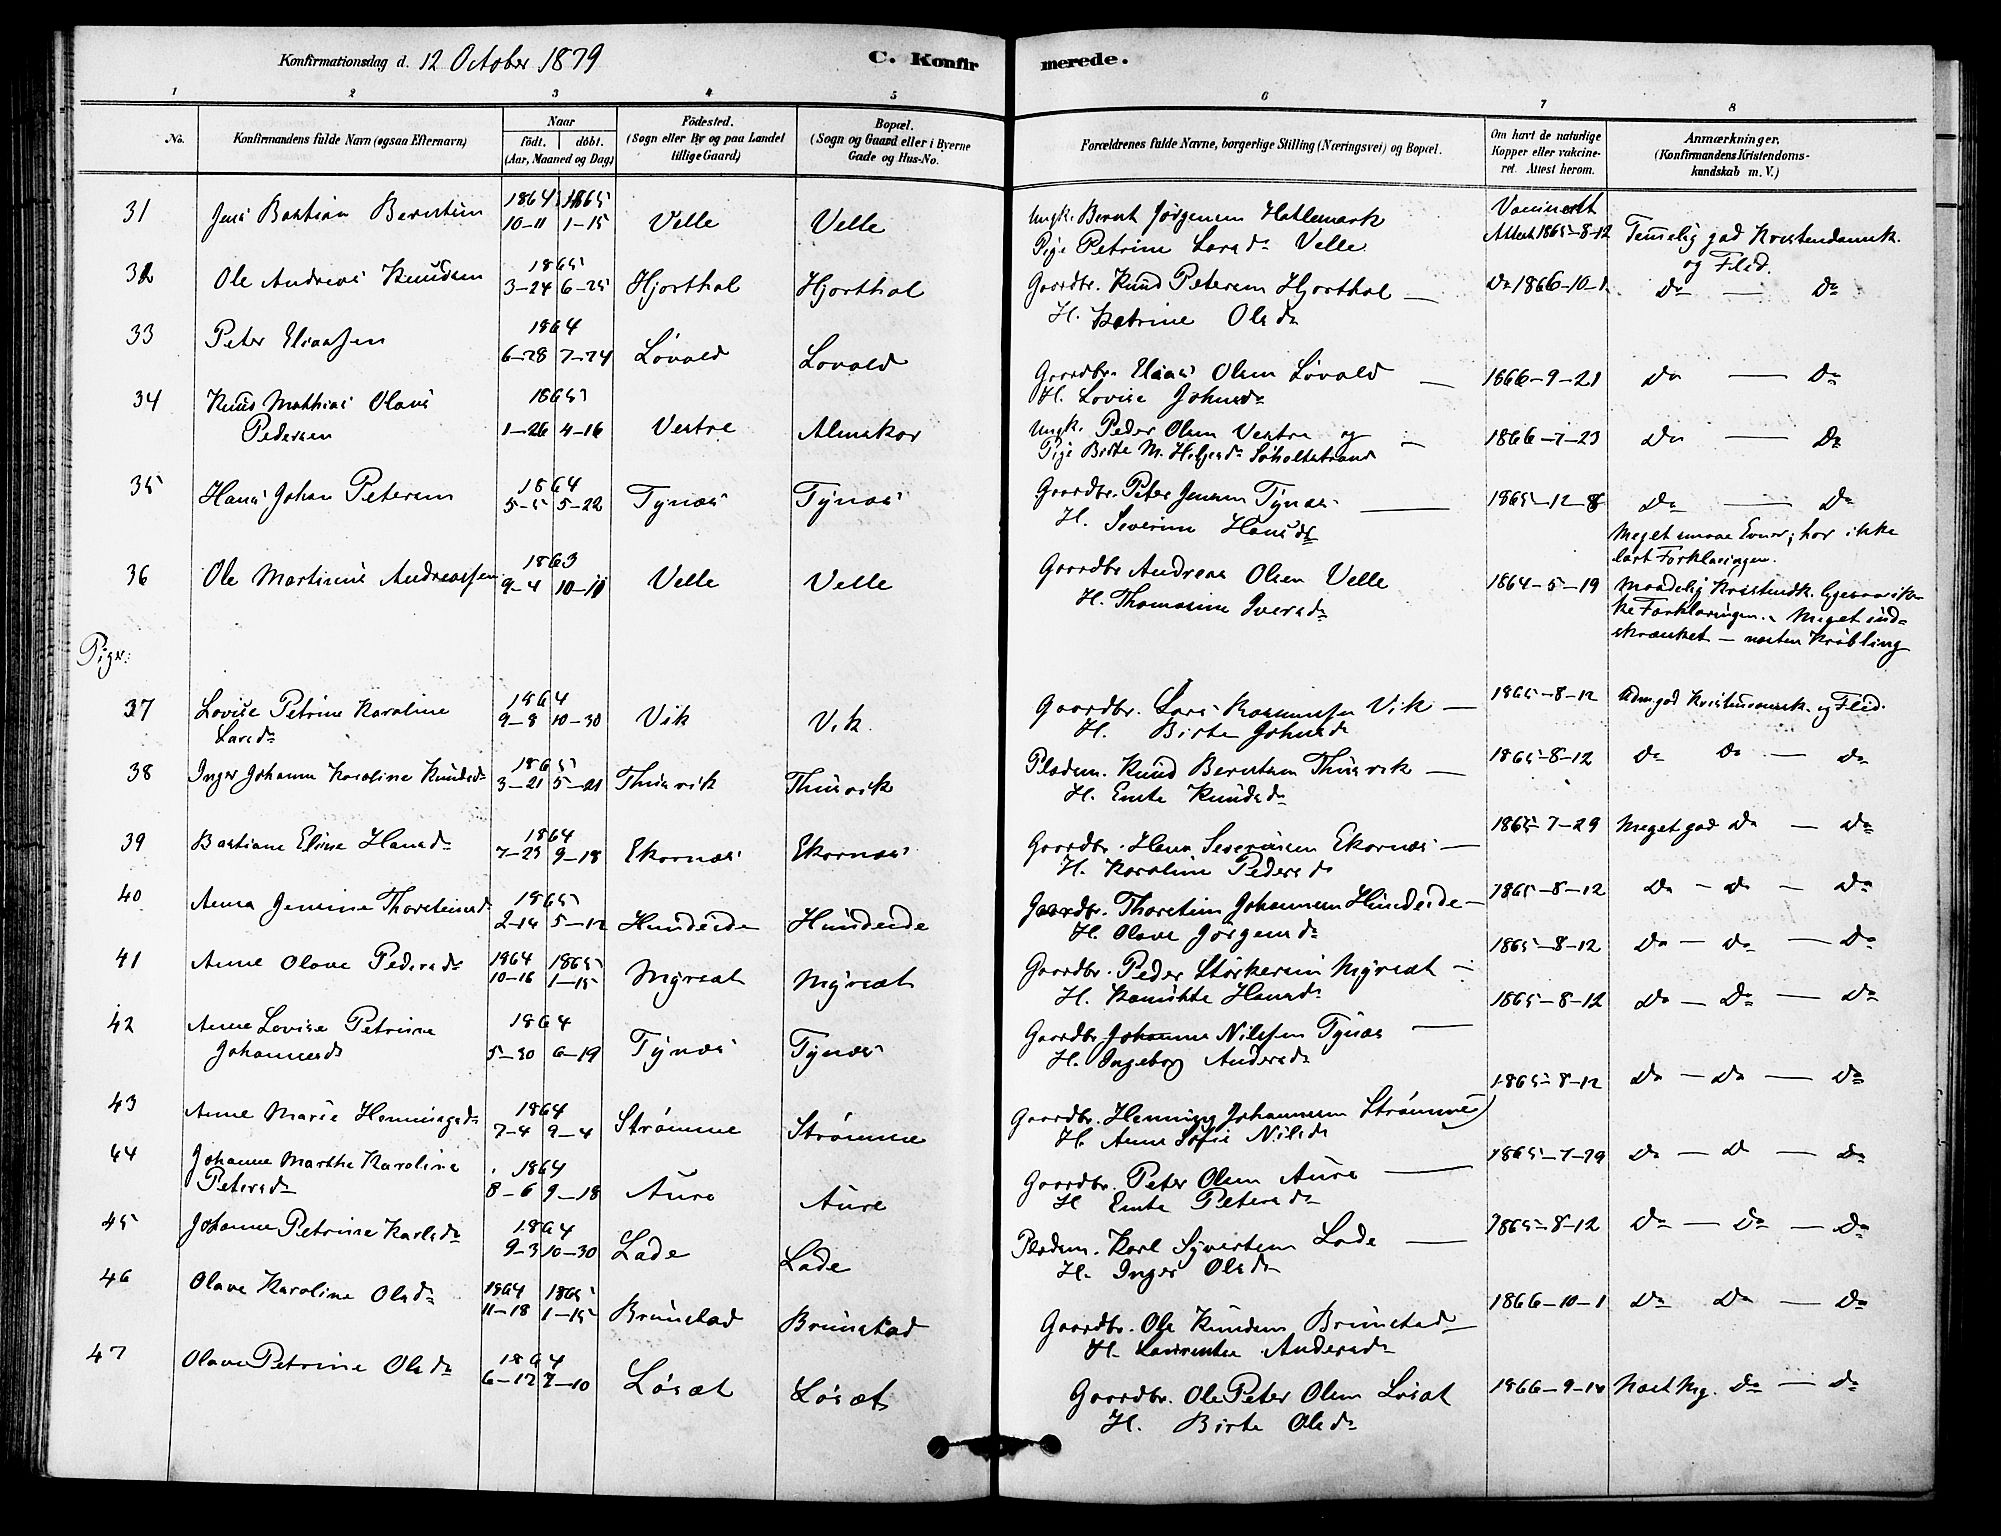 Konfirmationsdag d. 12 October 1879
C. Konfir
merede.
1 2 3 4 5 6 7 8
No.
Konfirmandens fulde Navn (ogsaa Efternavn)
Naar
födt. döbt.
(Aar, Maaned og Dag)
Födested.
(Sogn eller By og paa Landet
tillige Gaard)
Bopæl.
(Sogn og Gaard eller i Byerne
Gade og Hus-No.
Forældrenes fulde Navne, borgerlige Stilling (Næringsvei) og Bopæl.
Om havt de naturlige
Kopper eller vakcine-
ret. Attest herom.
Anmærkninger.
(Konfirmandens Kristendoms-
kundskab m. V.)
31 Jens Bastian Berntsen 1864 1865 10-11 1-15 Velle Velle
Ungk. Bernt Jørgensen Hatlemark
Pige Petrine Larsdr Velle
Vaccineret
Attest 1865-8-12
Temmelig god Kristendomsk.
og Flid.
32 Ole Andreas Knudsen 1865 3-24 6-25 Hjorthol Hjorthol
Gaardbr. Knud Petersen Hjorthol —
H. Katrine Olsdr
Do 1866-10-1
Do — Do
33 Peter Eliassen 1864 6-28 7-24 Løvold Lovold
Gaardbr. Elias Olsen Løvold —
H. Lovise Johnsdr
1866-9-21
Do — Do
34 Knud Mathias Olaus
Pedersen 1865 1-26 4-16 Vestre Almskor
Ungk. Peder Olsen Vestre og —
Pige Birte M. Soholtstrand
1866-7-23
Do — Do
35 Hans Johan Petersen 1864 5-5 5-22 Tynæs Tynæs
Gaardbr. Peter Jensen Tynæs —
H. Severine Hansdr
1865-12-8
Do — Do
Meget smaae Evner; har ikke
lært Forklaringen.
36 Ole Martinus Andreassen 1863 9-4 10-11 Velle Velle
Gaardbr Andreas Olsen Velle
H. Thomasine Iversdr
1864-5-19
Maadelig Kristendk.
ke Forklaringen. Meget ind-
skrænket — næsten Krøbling
Piger:
37 Lovise Petrine Karoline
Larsdr 1864 9-8 10-30 Vik Vik
Gaardbr. Lars Rasmussen Vik —
H. Birte Johnsdr
1865-8-12
Udm. god Kristendomsk. og Flid.
38 Inger Johanne Karoline Knudsdr 1865 3-21 5-21 Thusvik Thusvik
Pladsm. Knud Berntsen Thusvik —
H. Emte Knudsdr
1865-8-12
Do Do — Do
39 Bastiane Eline Hansdr 1864 7-23 9-18 Ekornæs Ekornæs
Gaardbr. Hans Severinsen Ekornæs —
H. Karoline Pedersdr
1865-7-29
Meget god Do — Do
40 Anna Jensine Thorsteinsdr 1865 2-14 5-12 Hundeide Hundeide
Gaardbr. Thorstein Johannesen Hundeide —
H. Olave Jørgensdr
1865-8-12
Do — Do — Do
41 Anne Olave Pedersdr 1864 1865 10-16 1-15 Myrsæt Myrsæt
Gaardbr. Peder Størkersen Myrsæt —
H. Hansdr
1865-8-12
Do — Do — Do
42 Anne Lovise Petrine
Johannesdr 1864 5-30 6-19 Tynæs Tynæs
Gaardbr. Johannes Nilssen Tynæs —
H. Ingeborg Andersdr
1865-8-12
Do — Do — Do
43 Anne Marie Henningsdr 1864 7-4 9-4 Strømme Strømme
Gaardbr. Henning Johannesen Strømme
H. Anne Sofie Nilsdr
1865-8-12
Do — Do — Do
44 Johanne Marthe Karoline
Petersdr 1864 8-6 9-18 Aure Aure
Gaardbr. Peter Olsen Aure —
H Emte Petersdr
1865-7-29
Do — Do — Do
45 Johanne Petrine Karlsdr 1864 9-3 10-30 Lade Lade
Pladsm. Karl Syvertsen Lade —
H. Inger Olsdr
1865-8-12
Do — Do — Do
46 Olave Karoline Olsdr 1864 1865 11-18 1-15 Brunstad Brunstad
Gaardbr. Ole Knudsen Brunstad
H. Laurentse Andersdr
1866-10-1
Do Do — Do
47 Olave Petrine Olsdr 1864 6-12 7-10 Løsæt Løsæt
Gaardbr. Ole Peter Olsen Løsæt
H. Birte Olsdr
1866-9-10
Næst Mg. Do — Do